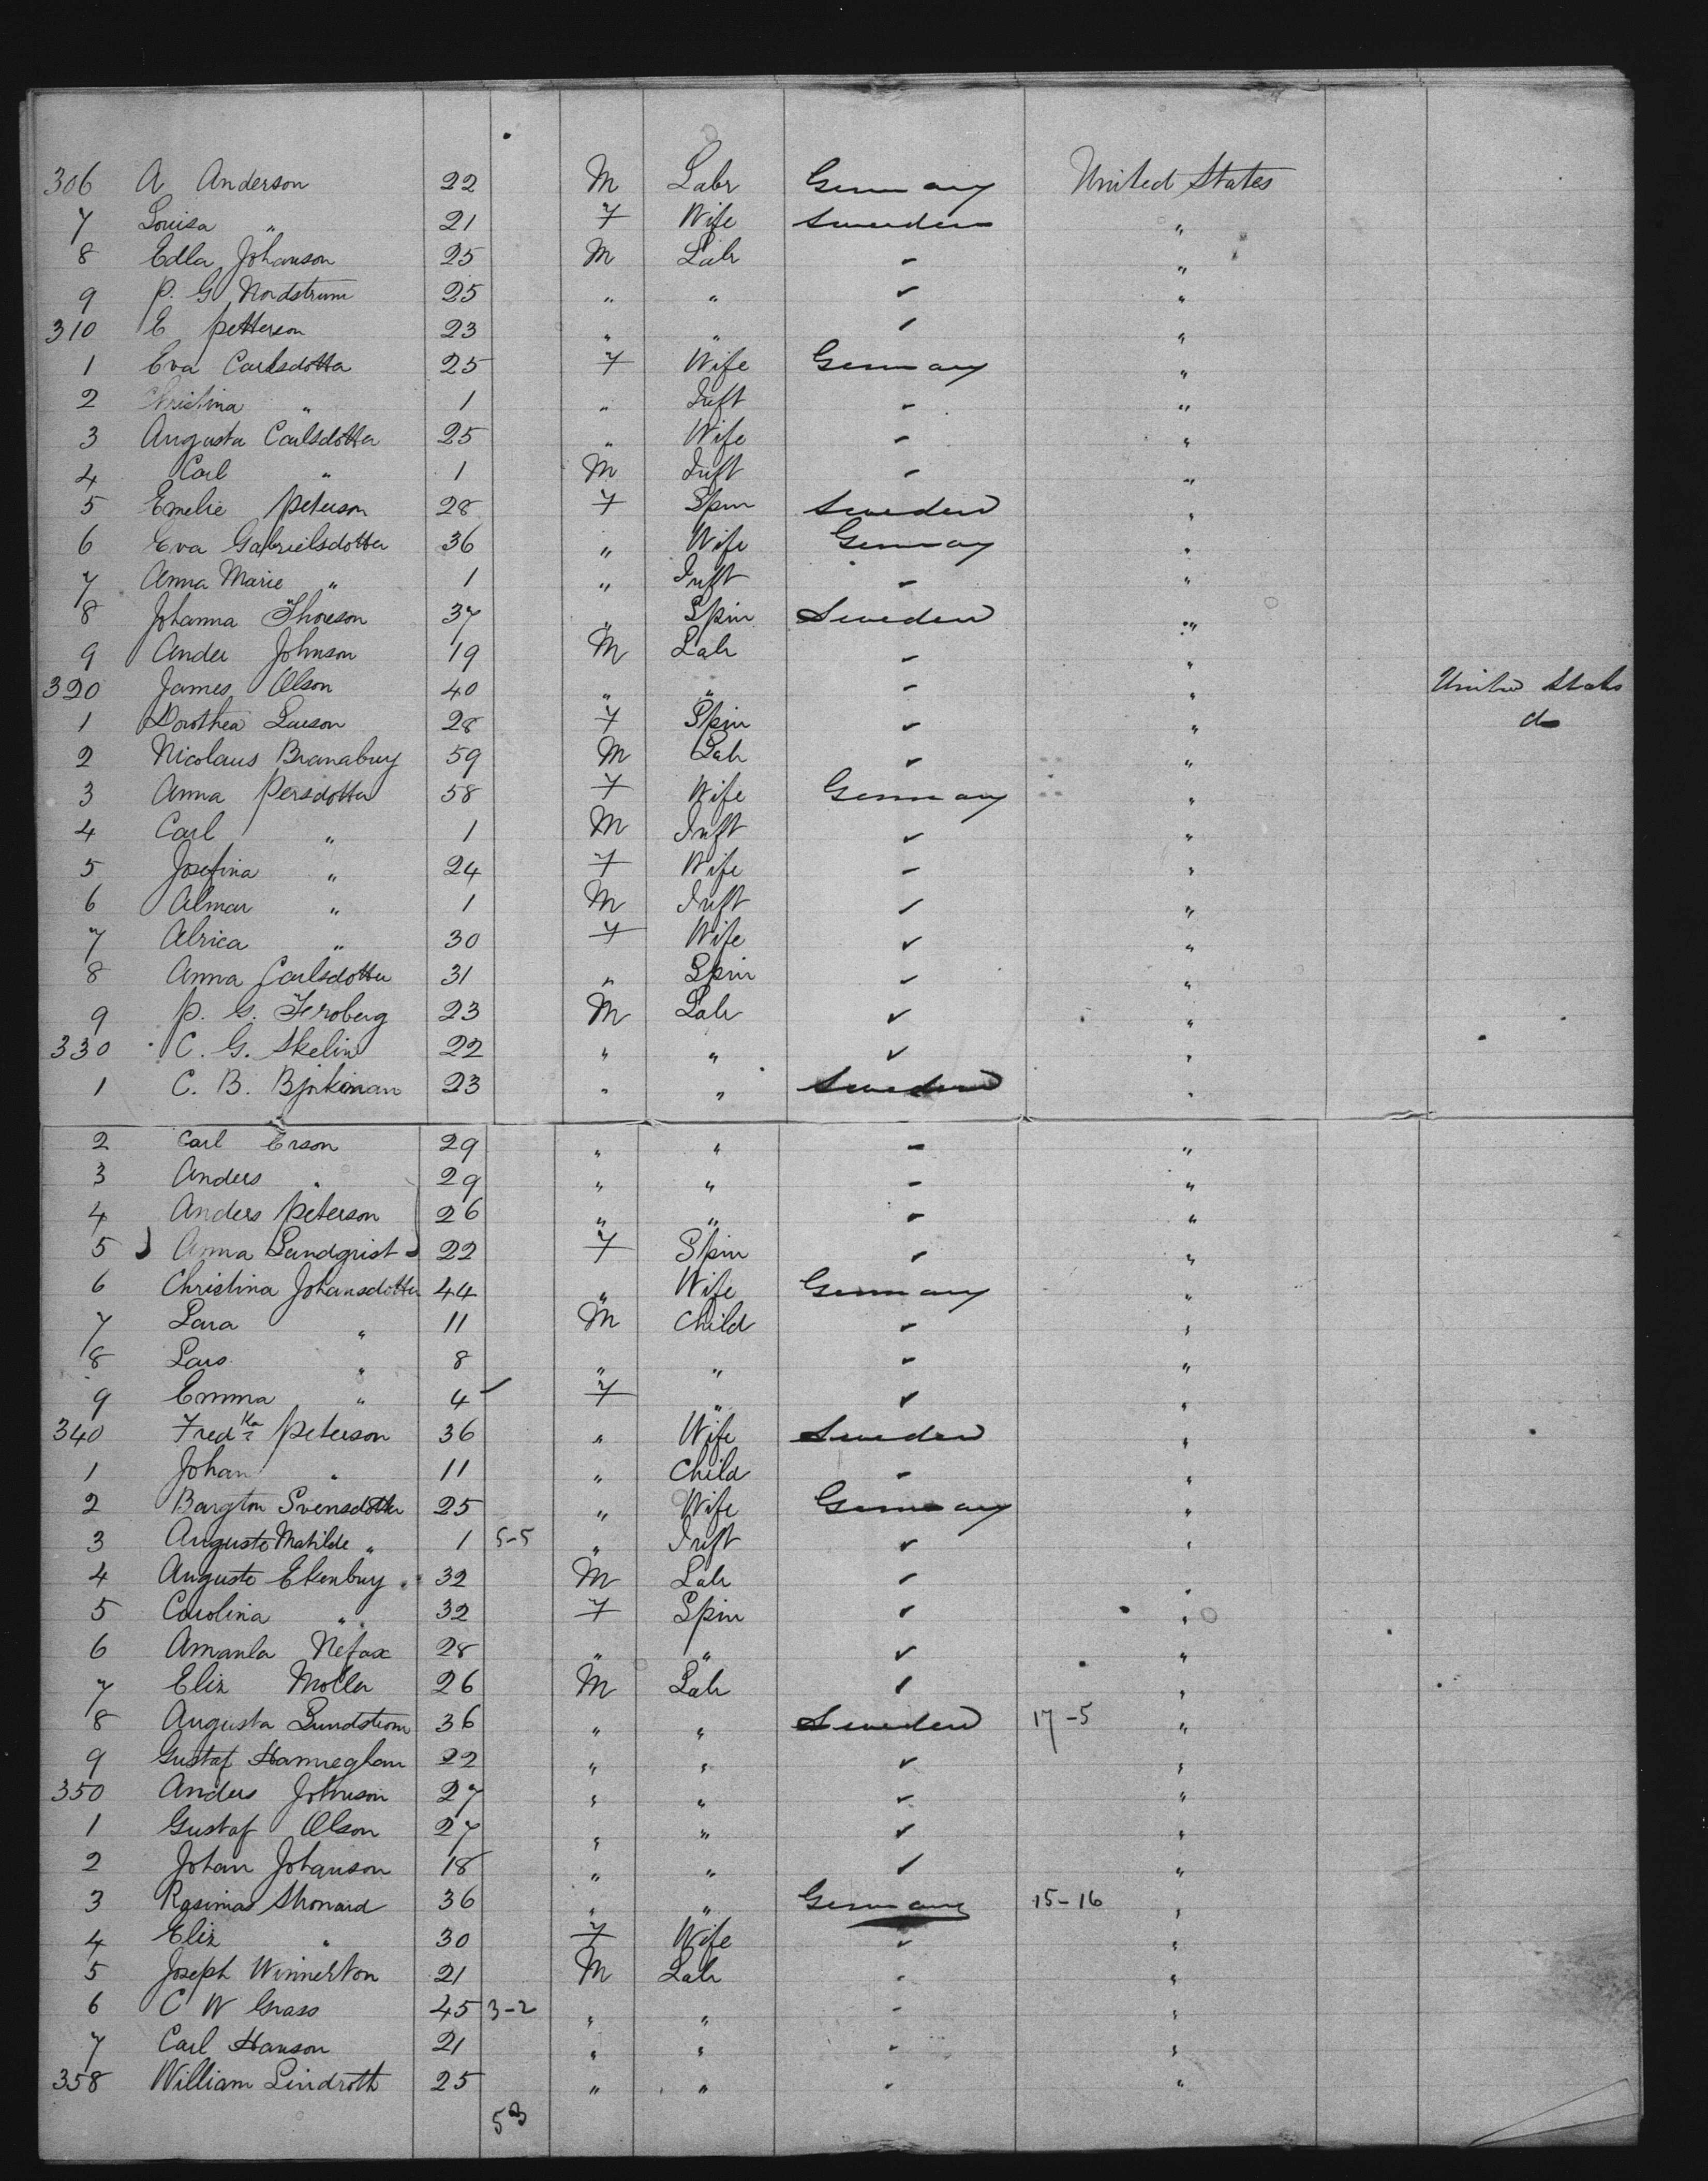 306 A Anderson 22 M Labr Germany United States
7 Louisa " 21 F Wife Sweden "
8 Edla Johanson 25 M Labr - "
9 P. G. Nordstrum 25 " " ✓ "
310 E Petterson 23 " " ✓ "
1 Eva Carlsdotta 25 F Wife Germany "
2 Christina " 1 " Inft - "
3 Augusta Carlsdotter 25 " Wife - "
4 Carl " 1 M Inft - "
5 Emelie Peterson 28 F Spin Sweden "
6 Eva Gabrielsdotter 36 " Wife Germany "
7 Anna Marie " 1 " Inft - "
8 Johanna Thoreson 37 " Spin Sweden "
9 Ander Johnson 19 M Labr - "
320 James Olson 40 " " - " United States
1 Dorothea Larson 28 F Spin ✓ " do
2 Nicolaus Branabuy 59 M Labr ✓ "
3 Anna Persdotter 58 F Wife Germany "
4 Carl " 1 M Inft ✓ "
5 Josefina " 24 F Wife - "
6 Almar " 1 M Inft ✓ "
7 Alrica " 30 F Wife ✓ "
8 Anna Carlsdotter 31 " Spin - "
9 P. G. Froberg 23 M Labr ✓ "
330 C. G. Skelin 22 " " ✓ "
1 C. B. 23 " " Sweden "
2 Carl Erson 29 " " - "
3 Anders " 29 " " - "
4 Anders Peterson 26 " " - "
5 Anna Landqrist 22 F Spin ✓ "
6 Christina Johansdotter 44 " Wife Germany "
7 Lara " 11 M Child ✓ "
8 Lars " 8 " " ✓ "
9 Emma " 4 ✓ F " ✓ "
340 Fredka Peterson 36 " Wife Sweden "
1 Johan " 11 " Child - "
2 Bargton Svensdotter 25 " Wife Germany "
3 Auguste Matilde " 1 5-5 " Inft ✓ "
4 Auguste Ekenbuy 32 M Labr ✓ "
5 Carolina " 32 F Spin ✓ "
6 Amanla Nefax 28 " " ✓ "
7 Eliz Moller 26 M Labr ✓ "
8 Augusta Lundstrom 36 " " Sweden 17-5 "
9 Gustaf 22 " " ✓ "
350 Anders Johnson 27 " " ✓ "
1 Gustaf Olson 27 " " ✓ "
2 Johan Johanson 18 " " ✓ "
3 Rasimas Shonard 36 " " Germany 15-16 "
4 Eliz " 30 F Wife ✓ "
5 Joseph Winnerton 21 M Labr - "
6 C W Grass 45 3-2 " " - "
7 Carl Hanson 21 " " - "
358 William Lindroth 25 " " - "
53